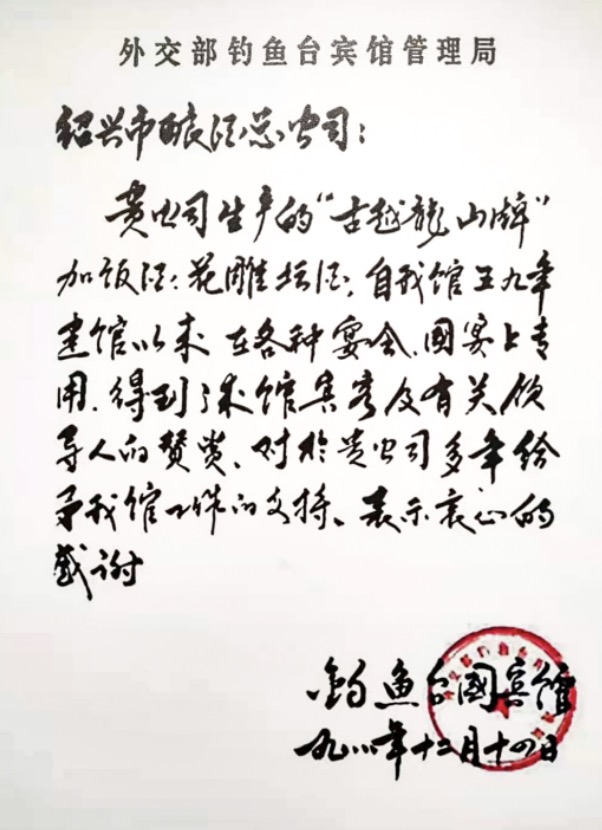 外交部钓鱼台宾馆管理局
绍兴市酿酒总公司：
贵公司生产的“古越龍山牌”
加饭酒、花雕坛酒，自我馆五九年
建馆以来在各种宴会、國宴上专
用，得到了来馆宾客及有关领
导人的赞赏、对於贵公司多年给
予我馆工作的支持、表示衷心的
感谢
钓鱼台國宾馆
九八八年十二月十四日